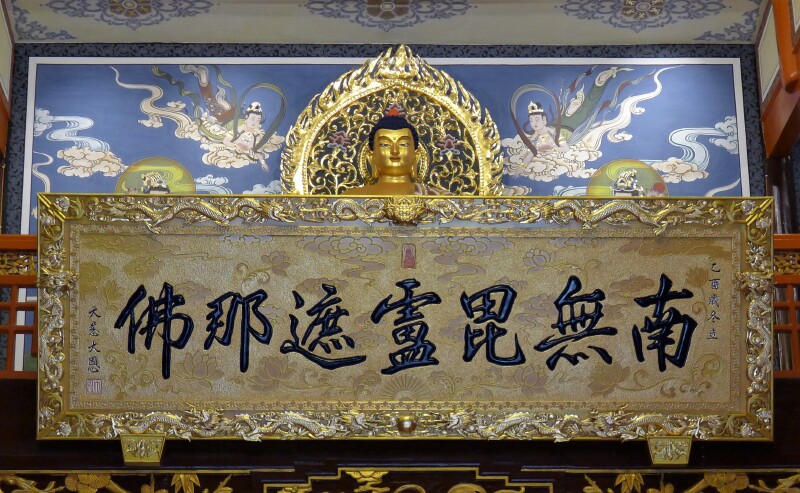 乙酉歲冬立
南無毘盧遮那佛
大慈大恩